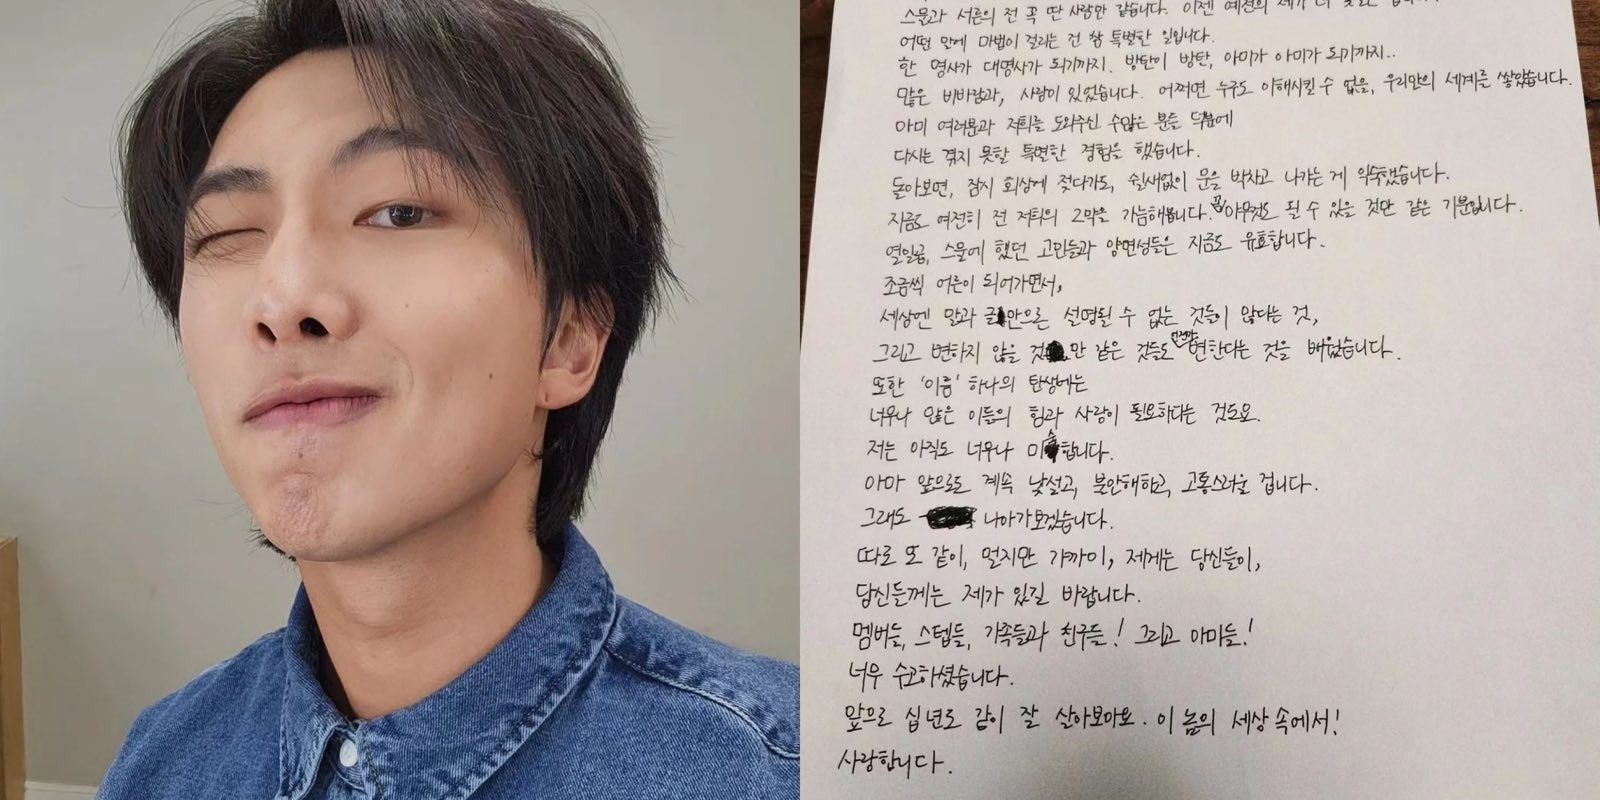 스물과 서른의 전 꼭 딴 사람만 같습니다. 이젠 예전의 제가 더
어떤 말에 마법이 걸리는 건 참 특별한 일입니다.
한 명사가 대명사가 되기까지. 방탄이 방탄, 아미가 아미가 되기까지..
많은 비바람과, 사랑이 있었습니다. 어쩌면 누구도 이해시킬 수 없을, 우리만의 세계를 쌓았습니다.
아미 여러분과 저희를 도와주신 수많은 분들 덕분에
다시는 겪지 못할 특별한 경험을 했습니다.
돌아보면, 잠시 회상에 젖다가도, 쉴새없이 문을 박차고 나가는 게 익숙했습니다.
지금도 여전히 전 저희의 2막을 가늠해봅니다. 꼭 아무것도 될 수 있을 것만 같은 기분입니다.
열일곱, 스물에 했던 고민들과 양면성들은 지금도 유효합니다.
조금씩 어른이 되어가면서,
세상엔 말과 글만으론 설명될 수 없는 것들이 많다는 것,
그리고 변하지 않을 것만 같은 것들도 언젠간 변한다는 것을 배웠습니다.
또한 '이름' 하나의 탄생에는
너무나 많은 이들의 힘과 사랑이 필요하다는 것도요.
저는 아직도 너무나 미숙합니다.
아마 앞으로도 계속 낯설고, 불안해하고, 고통스러울 겁니다.
그래도 나아가보겠습니다.
따로 또 같이, 멀지만 가까이, 제게는 당신들이,
당신들께는 제가 있길 바랍니다.
멤버들, 스텝들, 가족들과 친구들! 그리고 아미들!
너무 수고하셨습니다.
앞으로 십년도 같이 잘 살아보아요. 이 놈의 세상 속에서!
사랑합니다.